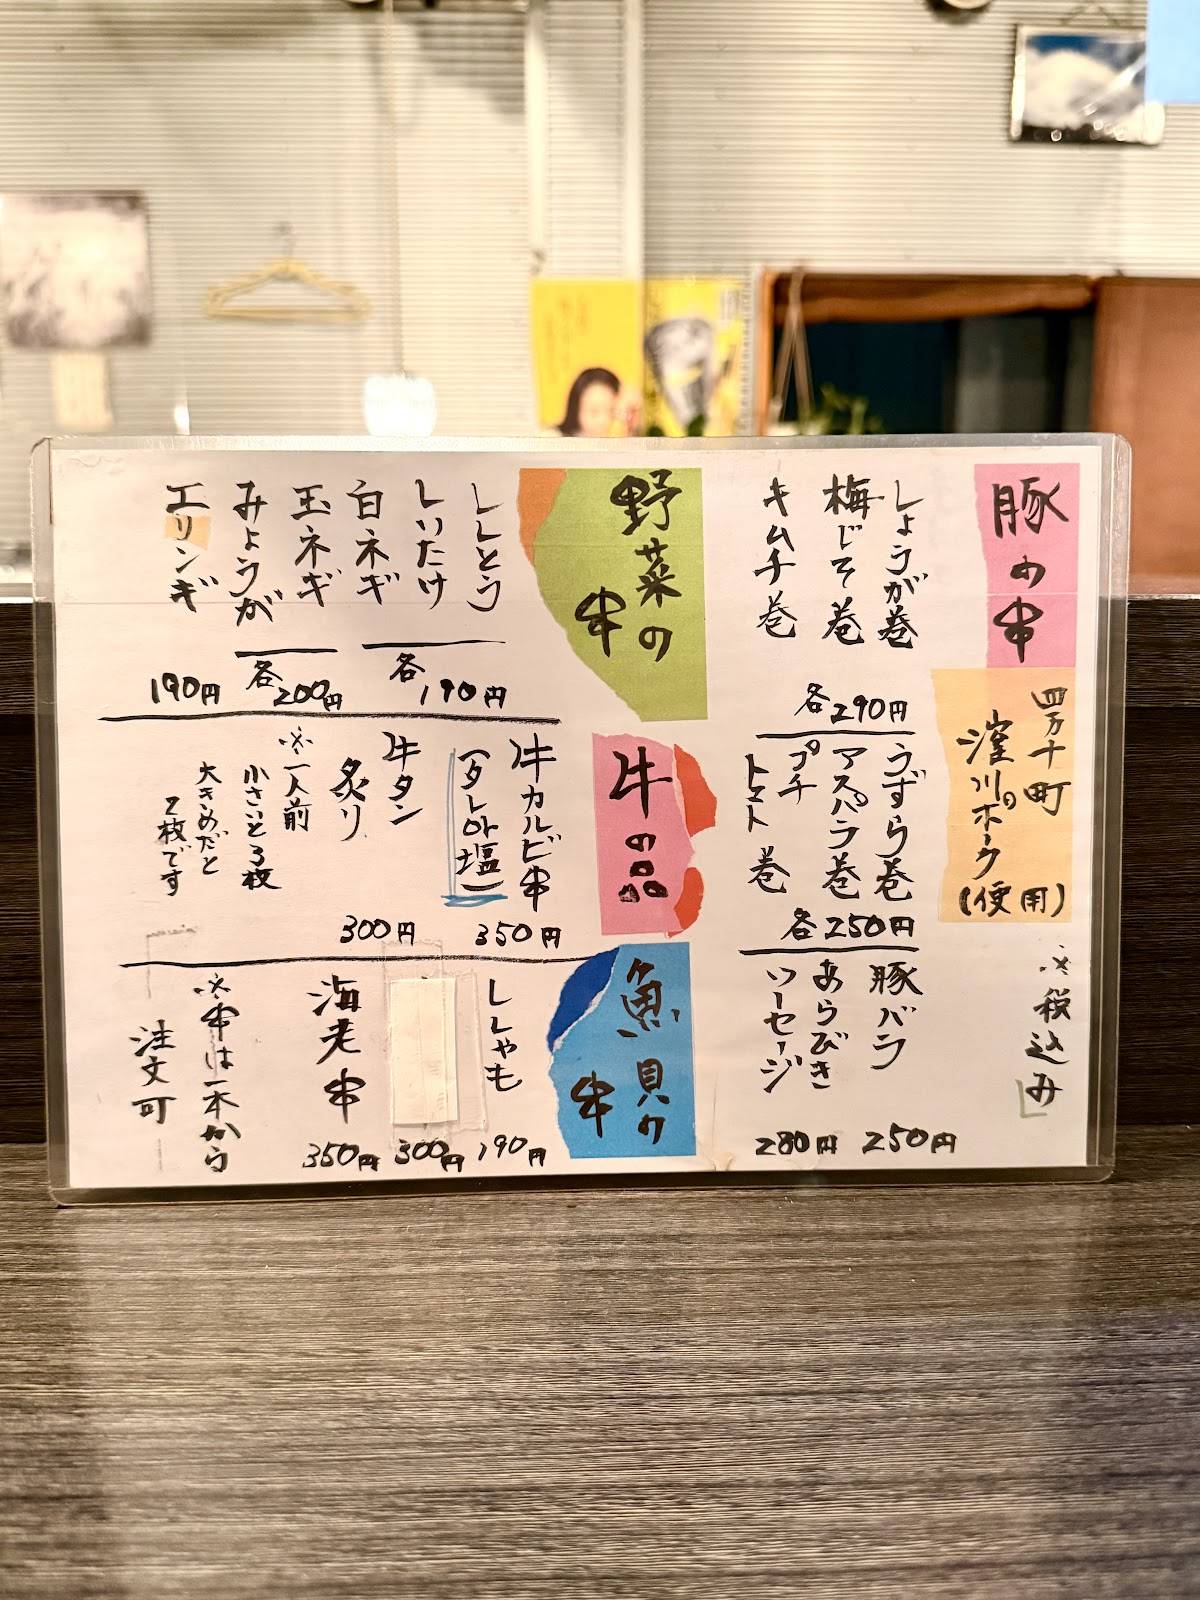 豚の串
四万十町
窪川ポーク
(使用)
※税込み
しょうが巻
梅じそ巻
キムチ巻
各290円
うずら巻
アスパラ巻
プチ
トマト巻
各250円
豚バラ
250円
あらびき
ソーセージ
280円
野菜の
串
ししとう
しいたけ
白ネギ
各190円
玉ネギ
みょうが
各200円
エリンギ
190円
牛の品
牛カルビ串
(タレor塩)
350円
牛タン
炙り
300円
※一人前
小さいと3枚
大きめだと
2枚です
魚貝の
串
ししゃも
190円
300円
海老串
350円
※串は一本から
注文可